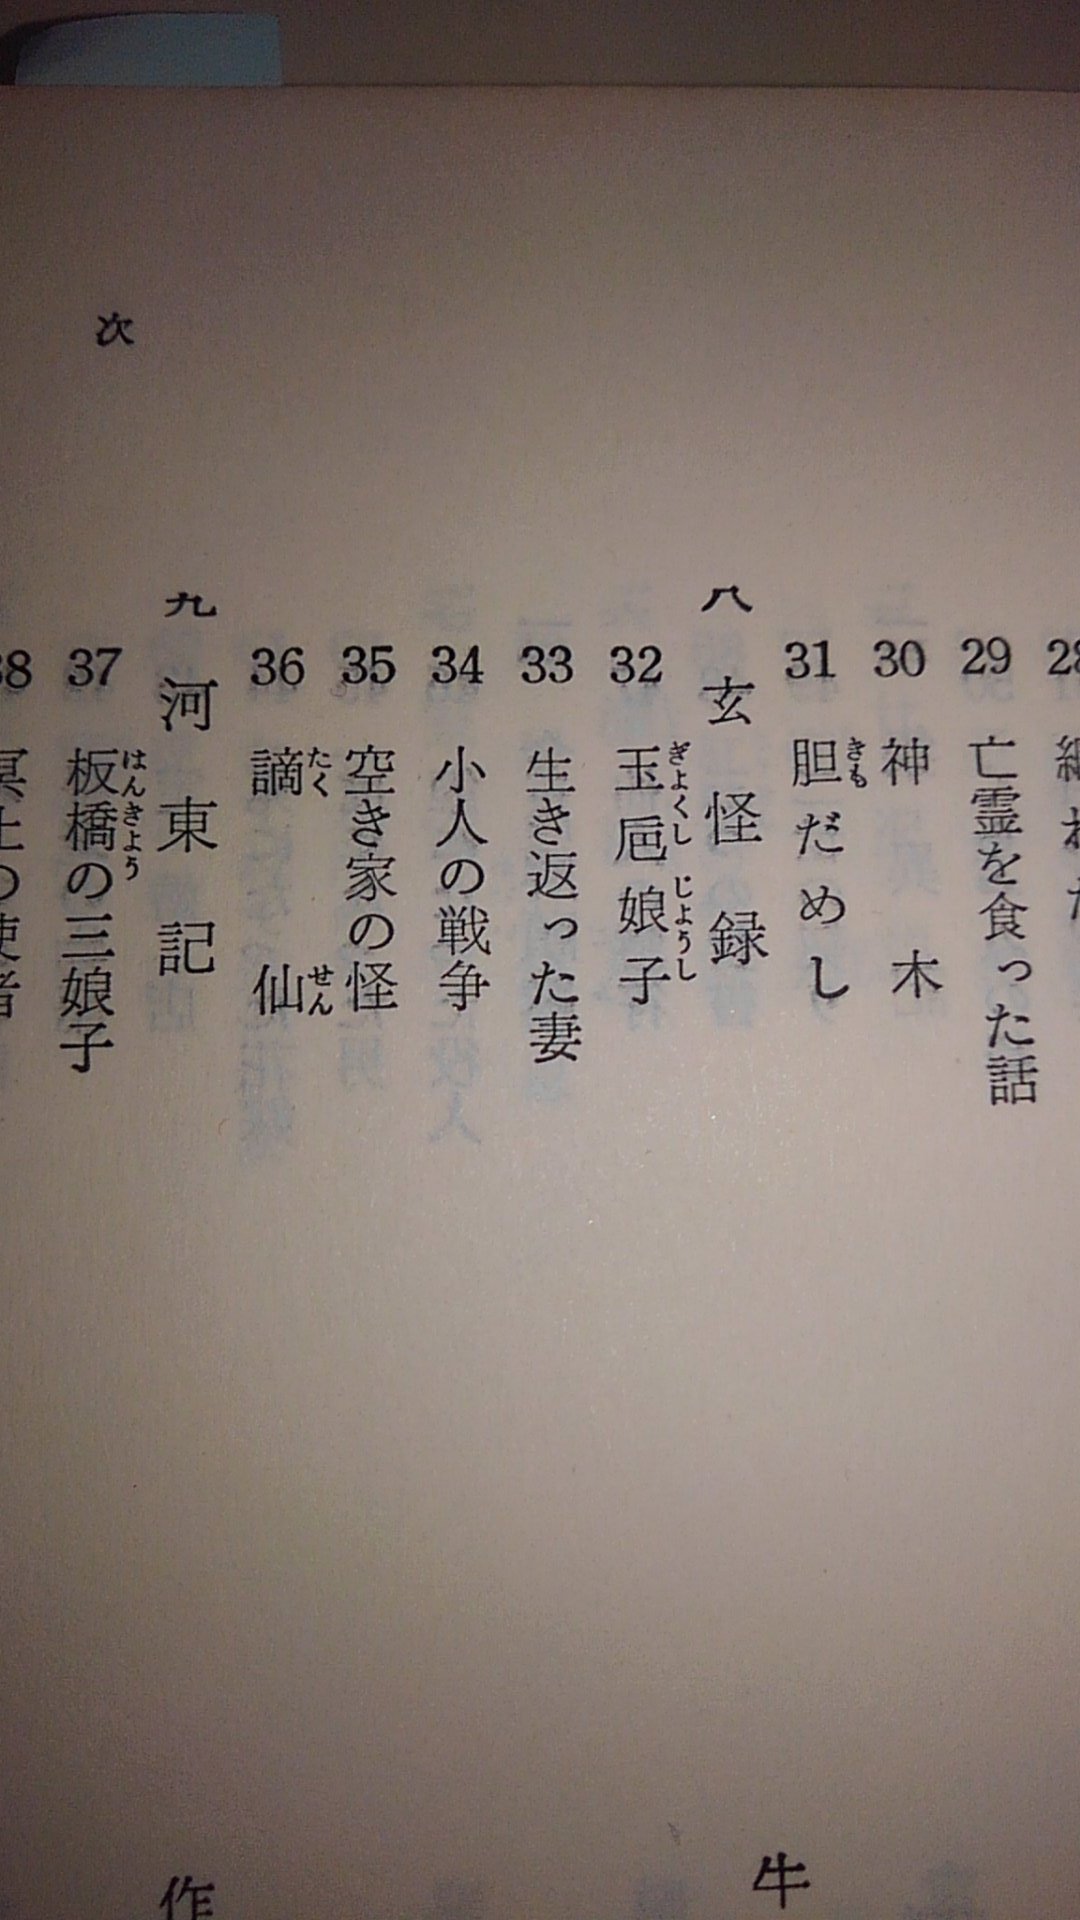 28
29 亡霊を食った話
30 神木
31 胆だめし
きも
八 玄怪録
牛
32 玉巵娘子
ぎよくし じようし
33 生き返った妻
34 小人の戦争
35 空き家の怪
36 謫仙
たく せん
九 河東記
作
37 板橋の三娘子
はんきよう
38 冥土の使者
次